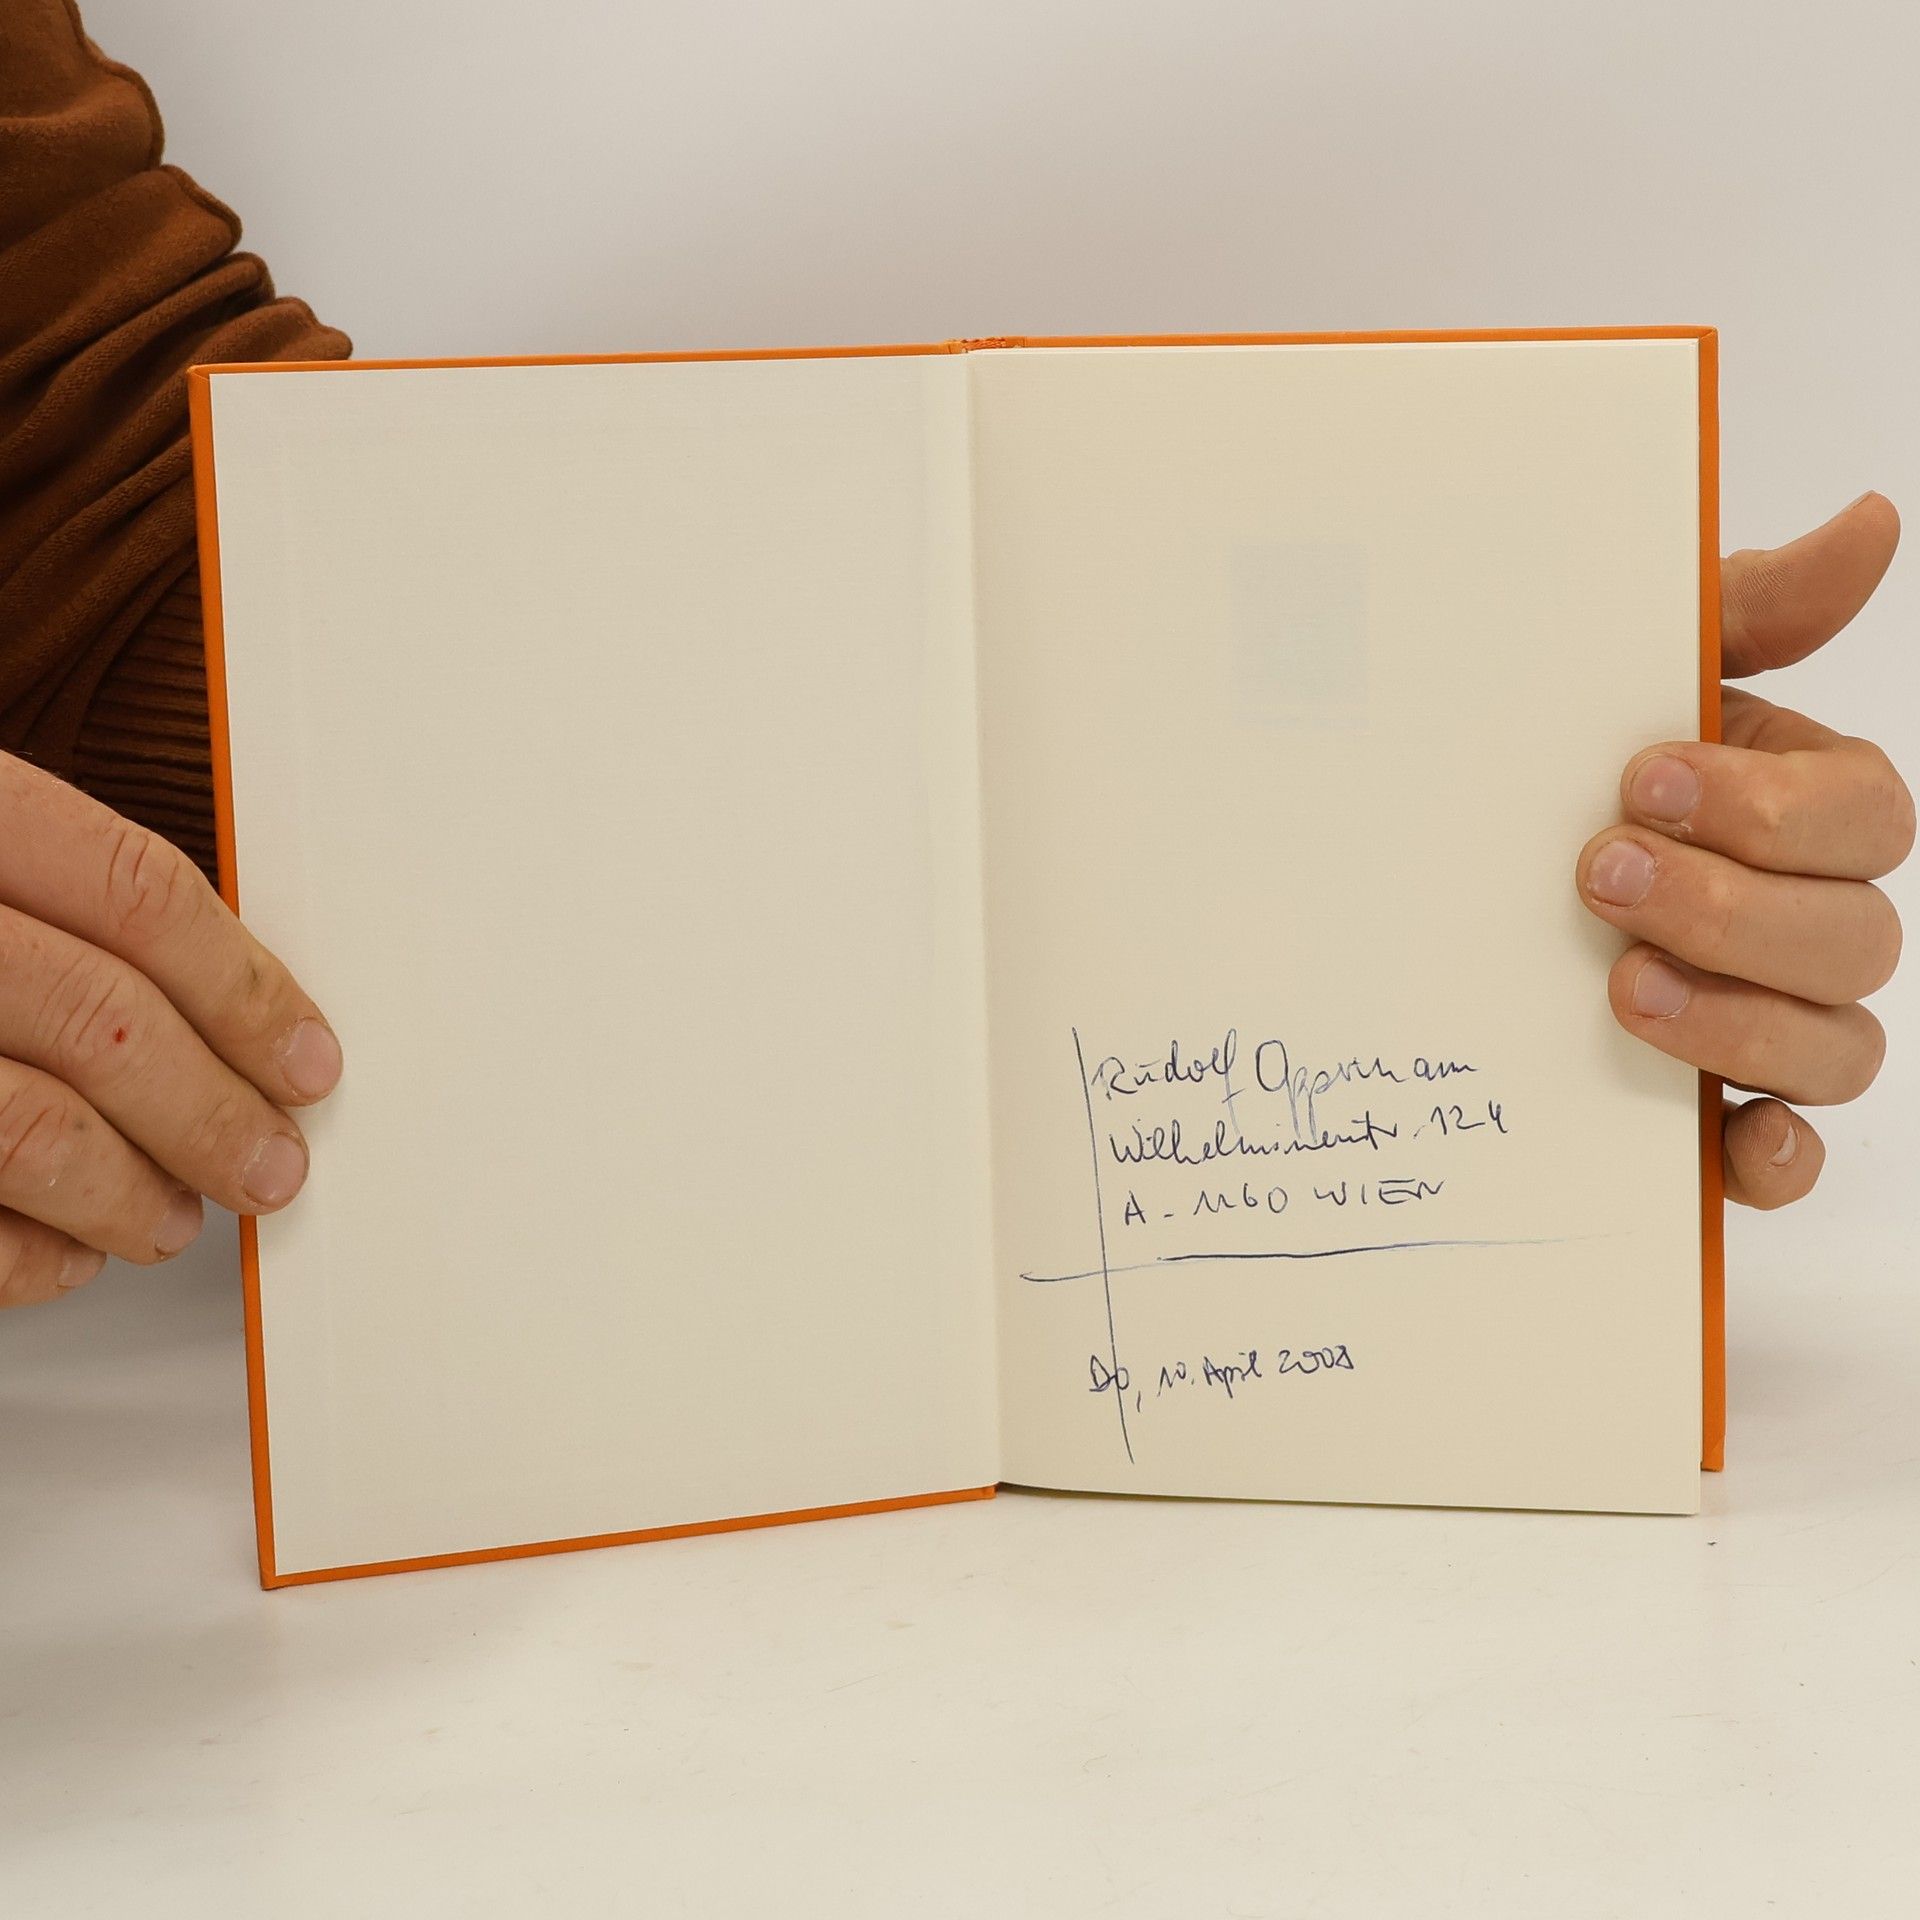 Rudolf Oppermann
Wilhelminenstr. 124
A - 1160 WIEN
Do, 10. April 2008